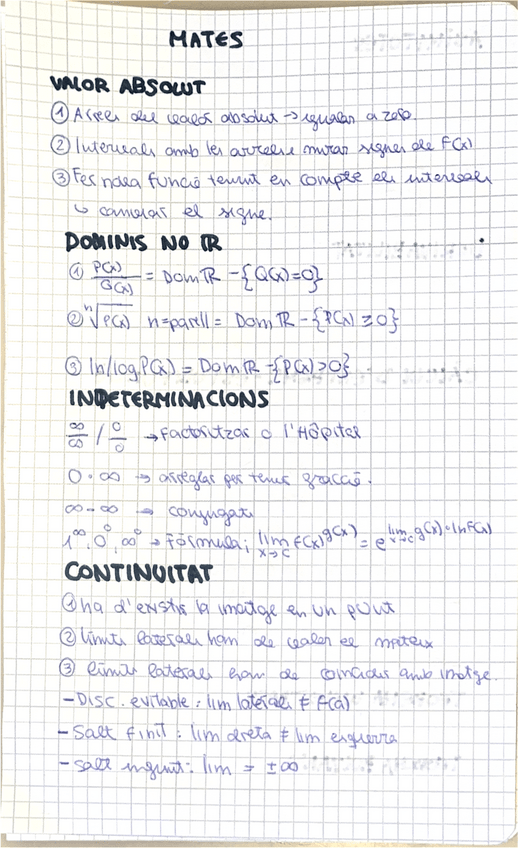 MATES
VALOR ABSOLUT
① Arrels del valor absolut → igualar a zero.
② Intervals amb les arrels i mirar signes de F(x)
③ Fes nova funció tenint en compte els intervals
↳ canviar el signe.
DOMINIS NO ℝ
① P(x)/Q(x) = Dom ℝ - {Q(x)=0}
② ⁿ√P(x) n=parell = Dom ℝ - {P(x) ≥ 0}
③ ln/log P(x) = Dom ℝ - {P(x) > 0}
INDETERMINACIONS
∞/∞ / 0/0 → factoritzar o l'Hôpital
0·∞ → arreglar per tenir fracció.
∞-∞ → conjugat
1^∞, 0^0, ∞^0 → Fórmula; lim x→c f(x)^g(x) = e^lim x→c g(x)·ln F(x)
CONTINUITAT
① ha d'existir la imatge en un punt
② límits laterals han de valer el mateix
③ límits laterals han de coincidir amb imatge.
- Disc. evitable: lim laterals ≠ f(a)
- Salt finit: lim dreta ≠ lim esquerra
- salt infinit: lim = ±∞